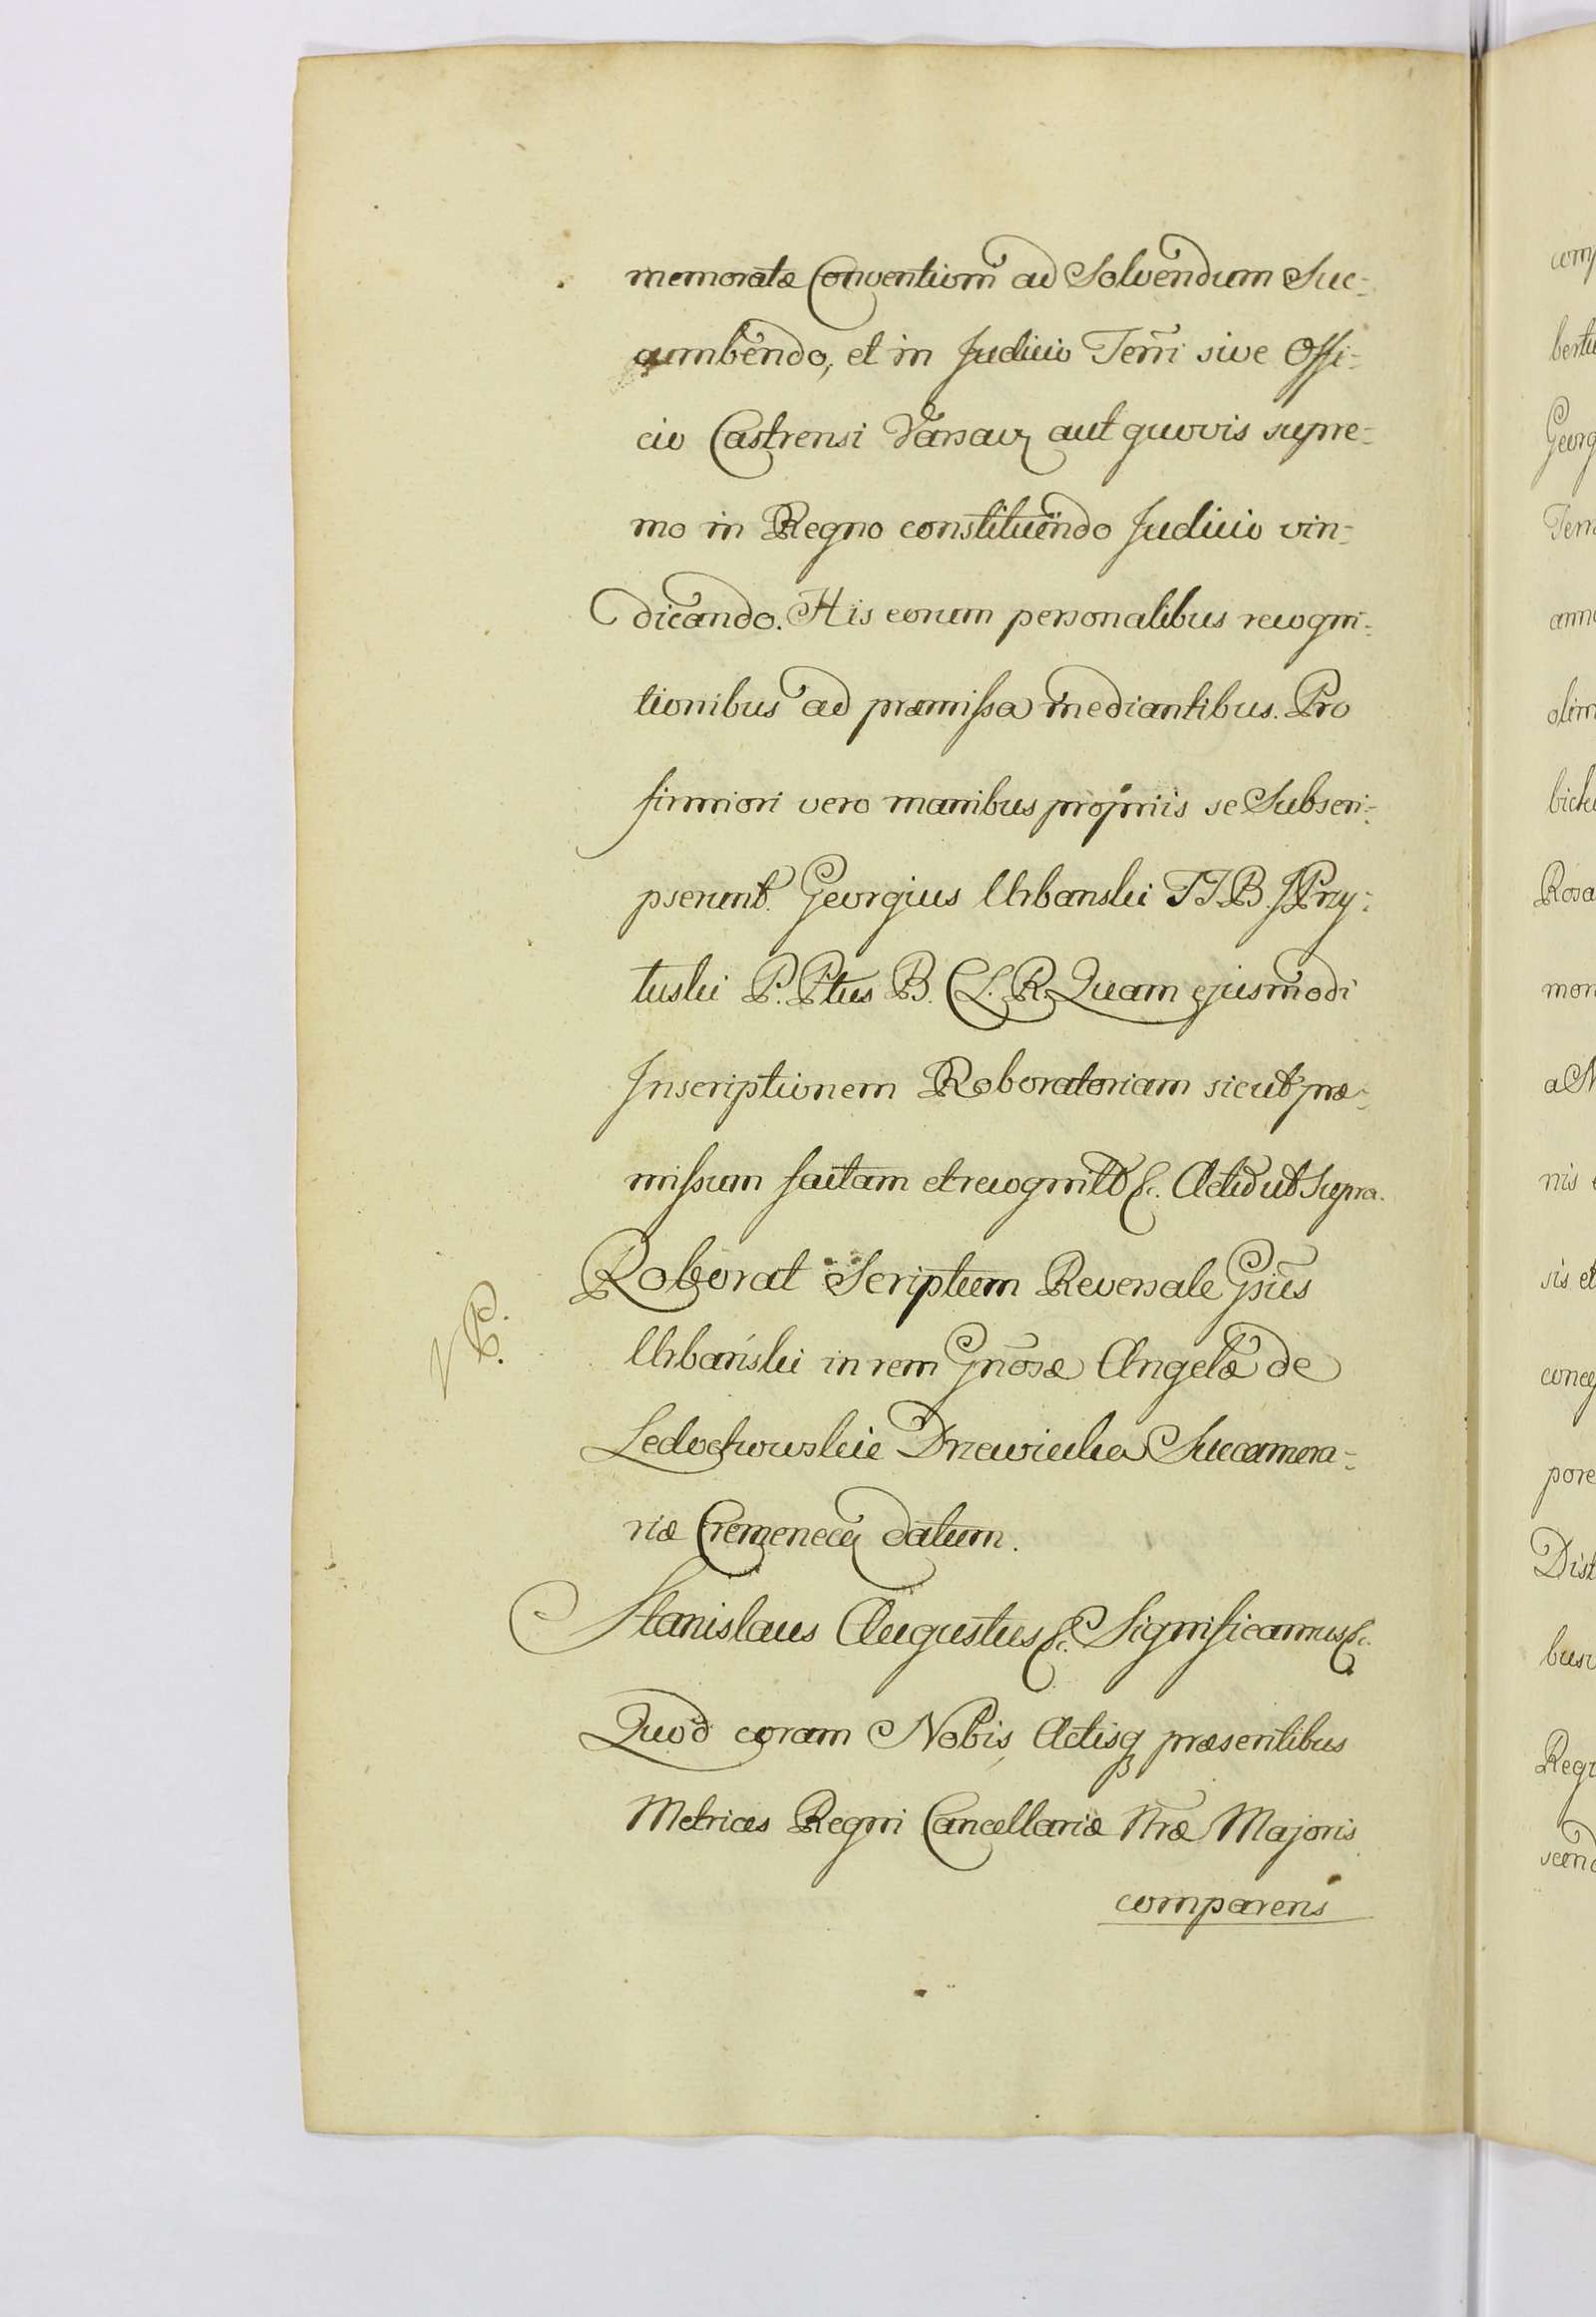 memoratæ Conventioni ad Solvendum Suc-
cumbendo, et in Judicio Terri sive Offi-
cio Castrensi Varsav. aut quovis supre-
mo in Regno constituendo Judicio vin-
dicando. His eorum personalibus recogni-
tionibus ad præmissa mediantibus. Pro
firmiori vero manibus propriis se Subscri-
pserunt. Georgius Urbanski T.T.B. J Pry-
tuski P. Ptus B. C.L.R. Quam ejusmodi
Inscriptionem Roboratoriam sicut præ-
missum factam et recognit &c. Actũ ut Supra.
Roborat Scriptum Reversale Gsũs
Urbański in rem Gnõsæ Angelæ de
Ledochowskie Drzewiecka Succamera-
riæ Cremenecen datum.
Stanislaus Augustus &c. Significamus &c.
Quod coram Nobis Actisq præsentibus
Metrices Regni Cancellariæ Nræ Majoris
comparens
com
bertu
Georg
Terr
ann
olim
bick
Rosa
mon
a N
nis
sis et
conce
pore
Dist
bus
Reg
scen